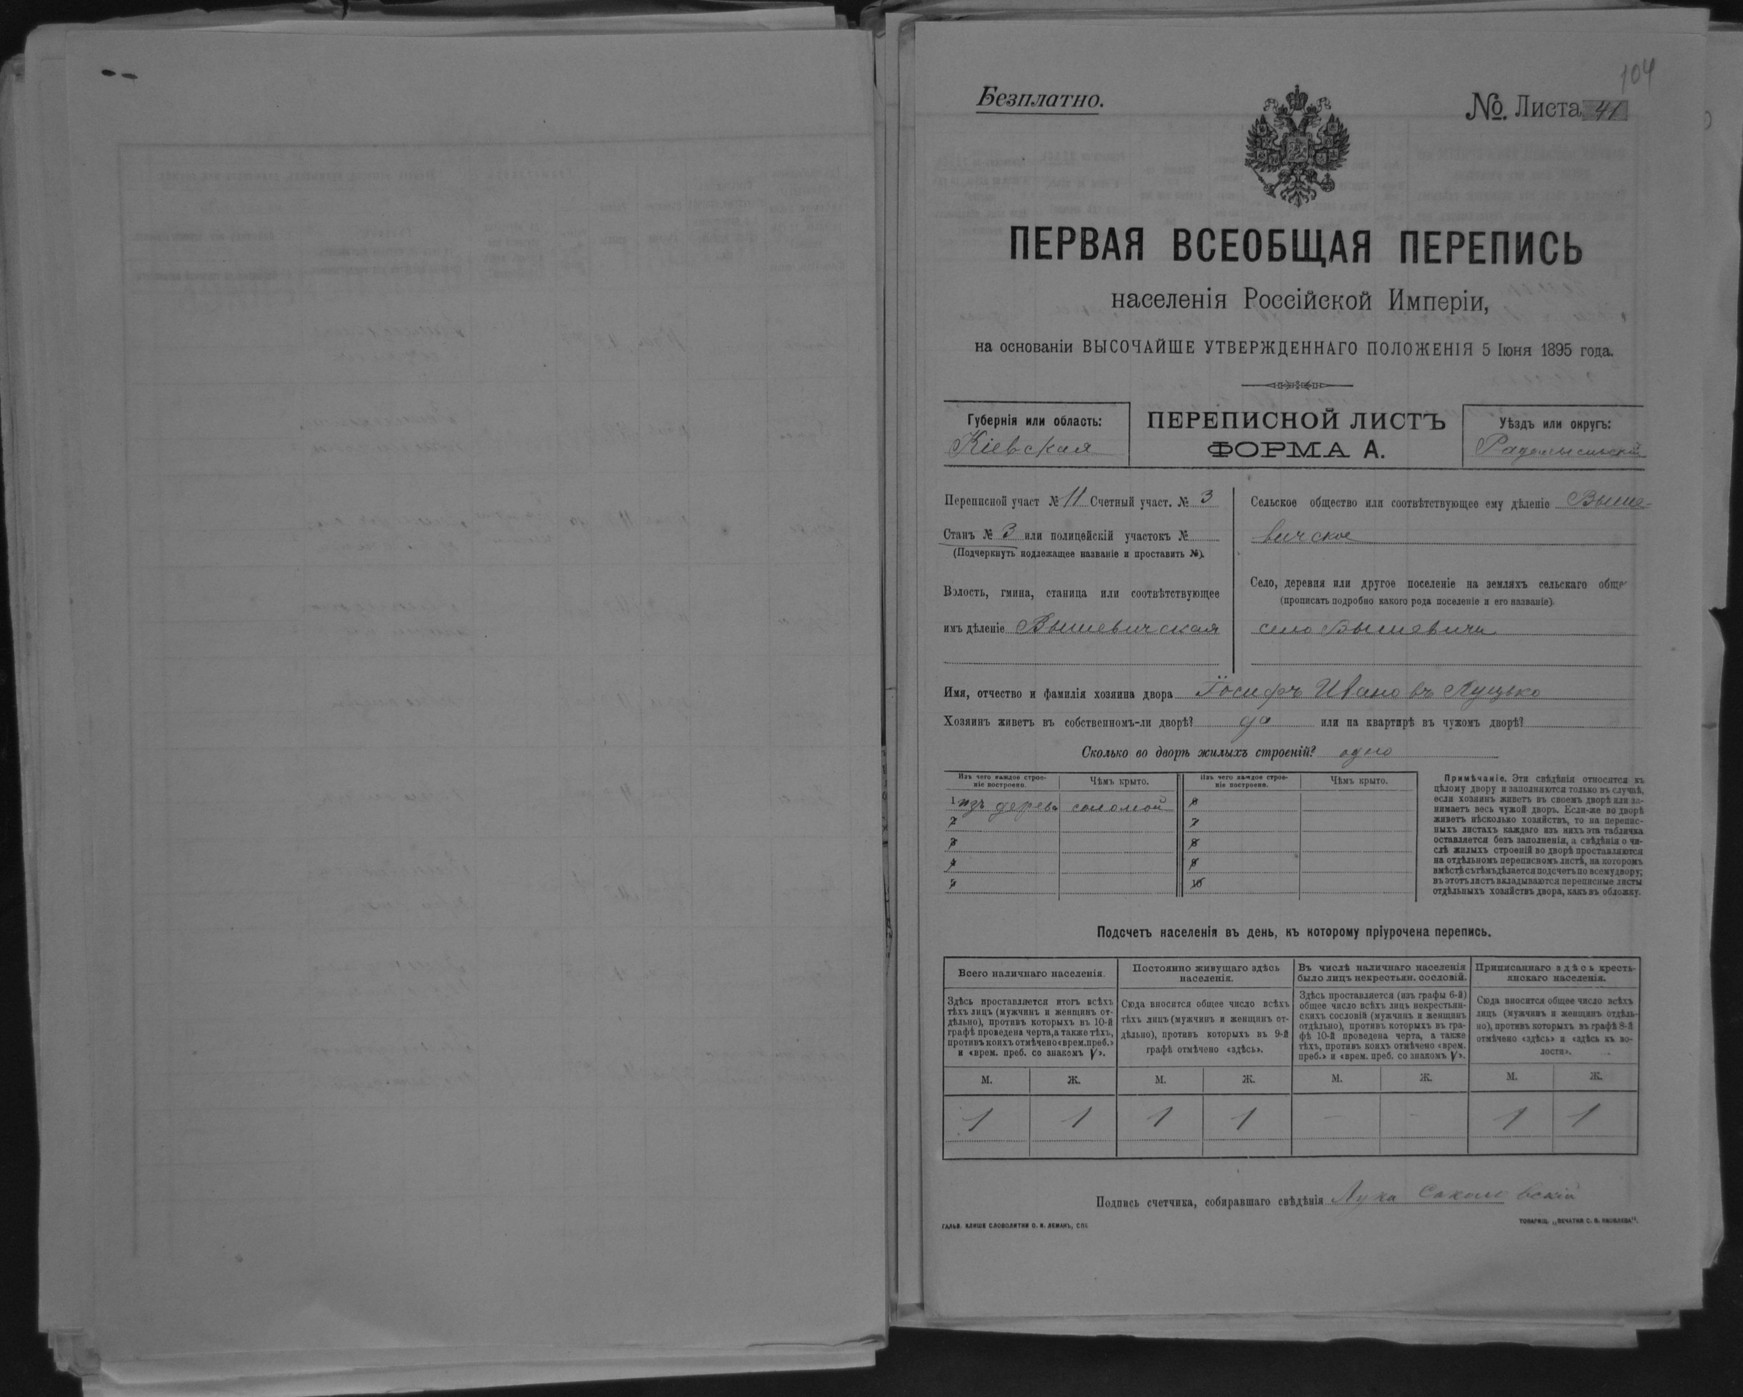 104
Безплатно.
№. Листа 41
ПЕРВАЯ ВСЕОБЩАЯ ПЕРЕПИСЬ
населенія Россійской Имперіи,
на основаніи ВЫСОЧАЙШЕ УТВЕРЖДЕННАГО ПОЛОЖЕНІЯ 5 Іюня 1895 года.
Губернія или область:
Кіевская
ПЕРЕПИСНОЙ ЛИСТЪ
ФОРМА А.
Уѣздъ или округъ:
Радомысльскій
Переписной участ № 11 Счетный участ. № 3
Станъ № 3 или полицейскій участокъ №
(Подчеркнуть подлежащее названіе и проставить №).
Волость, гмина, станица или соотвѣтствующее
имъ дѣленіе Вышевичская
Сельское общество или соотвѣтствующее ему дѣленіе Выше-
вичское
Село, деревня или другое поселеніе на земляхъ сельскаго обще
(прописать подробно какого рода поселеніе и его названіе).
село Вышевичи
Имя, отчество и фамилія хозяина двора Іосифъ Ивановъ Луцько
Хозяинъ живетъ въ собственномъ-ли дворѣ? да или на квартирѣ въ чужомъ дворѣ?
Сколько во дворѣ жилыхъ строеній? одно
Изъ чего каждое строе-
ніе построено.
Чѣмъ крыто.
Изъ чего каждое строе-
ніе построено.
Чѣмъ крыто.
1 изъ дерева соломой
2
3
4
5
6
7
8
9
10
Примѣчаніе. Эти свѣдѣнія относятся къ
цѣлому двору и заполняются только въ случаѣ,
если хозяинъ живетъ въ своемъ дворѣ или за-
нимаетъ весь чужой дворъ. Если-же во дворѣ
живетъ нѣсколько хозяйствъ, то на перепис-
ныхъ листахъ каждаго изъ нихъ эта табличка
оставляется безъ заполненія, а свѣдѣнія о чи-
слѣ жилыхъ строеній во дворѣ проставляются
на отдѣльномъ переписномъ листѣ, на которомъ
вмѣстѣ съ тѣмъ дѣлается подсчетъ по всему двору;
въ этотъ листъ вкладываются переписные листы
отдѣльныхъ хозяйствъ двора, какъ въ обложку.
Подсчетъ населенія въ день, къ которому пріурочена перепись.
Всего наличнаго населенія.
Здѣсь проставляется итогъ всѣхъ
тѣхъ лицъ (мужчинъ и женщинъ от-
дѣльно), противъ которыхъ въ 10-й
графѣ проведена черта, а также тѣхъ,
противъ коихъ отмѣчено «врем. преб.»
и «врем. преб. со знакомъ V».
Постоянно живущаго здѣсь
населенія.
Сюда вносится общее число всѣхъ
тѣхъ лицъ (мужчинъ и женщинъ от-
дѣльно), противъ которыхъ въ 9-й
графѣ отмѣчено «здѣсь».
Въ числѣ наличнаго населенія
было лицъ некрестьян. сословій.
Здѣсь проставляется (изъ графы 6-й)
общее число всѣхъ лицъ некрестьян-
скихъ сословій (мужчинъ и женщинъ
отдѣльно), противъ которыхъ въ гра-
фѣ 10-й проведена черта, а также
тѣхъ, противъ коихъ отмѣчено «врем.
преб.» и «врем. преб. со знакомъ V».
Приписаннаго здѣсь кресть-
янскаго населенія.
Сюда вносится общее число всѣхъ
лицъ (мужчинъ и женщинъ отдѣль-
но), противъ которыхъ въ графѣ 8-й
отмѣчено «здѣсь» и «здѣсь къ во-
лости».
М. Ж. М. Ж. М. Ж. М. Ж.
1 1 1 1 - - 1 1
Подпись счетчика, собиравшаго свѣдѣнія Лука Соколовскій
ГАЛЬВ. КЛИШЕ СЛОВОЛИТНИ О. И. ЛЕМАНЪ, СПБ
ТОВАРИЩ. „ПЕЧАТНЯ С. П. ЯКОВЛЕВА".